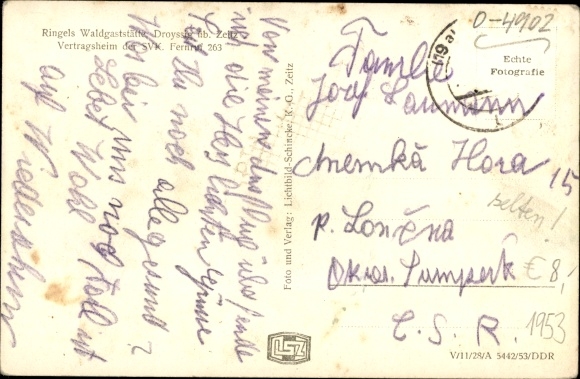 Ringels Waldgaststätte, Droyssig üb. Zeitz
Vertragsheim der SVK. Fernruf 263
Von meinem Ausflug übersende
ich die Herzlichsten Grüsse
Seid Ihr noch alle gesund?
Was bei uns noch Fall ist
Lebet Wohl
auf Wiedersehen
Foto und Verlag: Lichtbild-Schincke, K.-G., Zeitz
LSZ
D-4902
Echte
Fotografie
Familie
Josef Laumann
Nemká Hora 15
selten!
p. Loučna
Okres. Šumperk
€ 8,
Č. S. R.
1953
V/11/28/A 5442/53/DDR